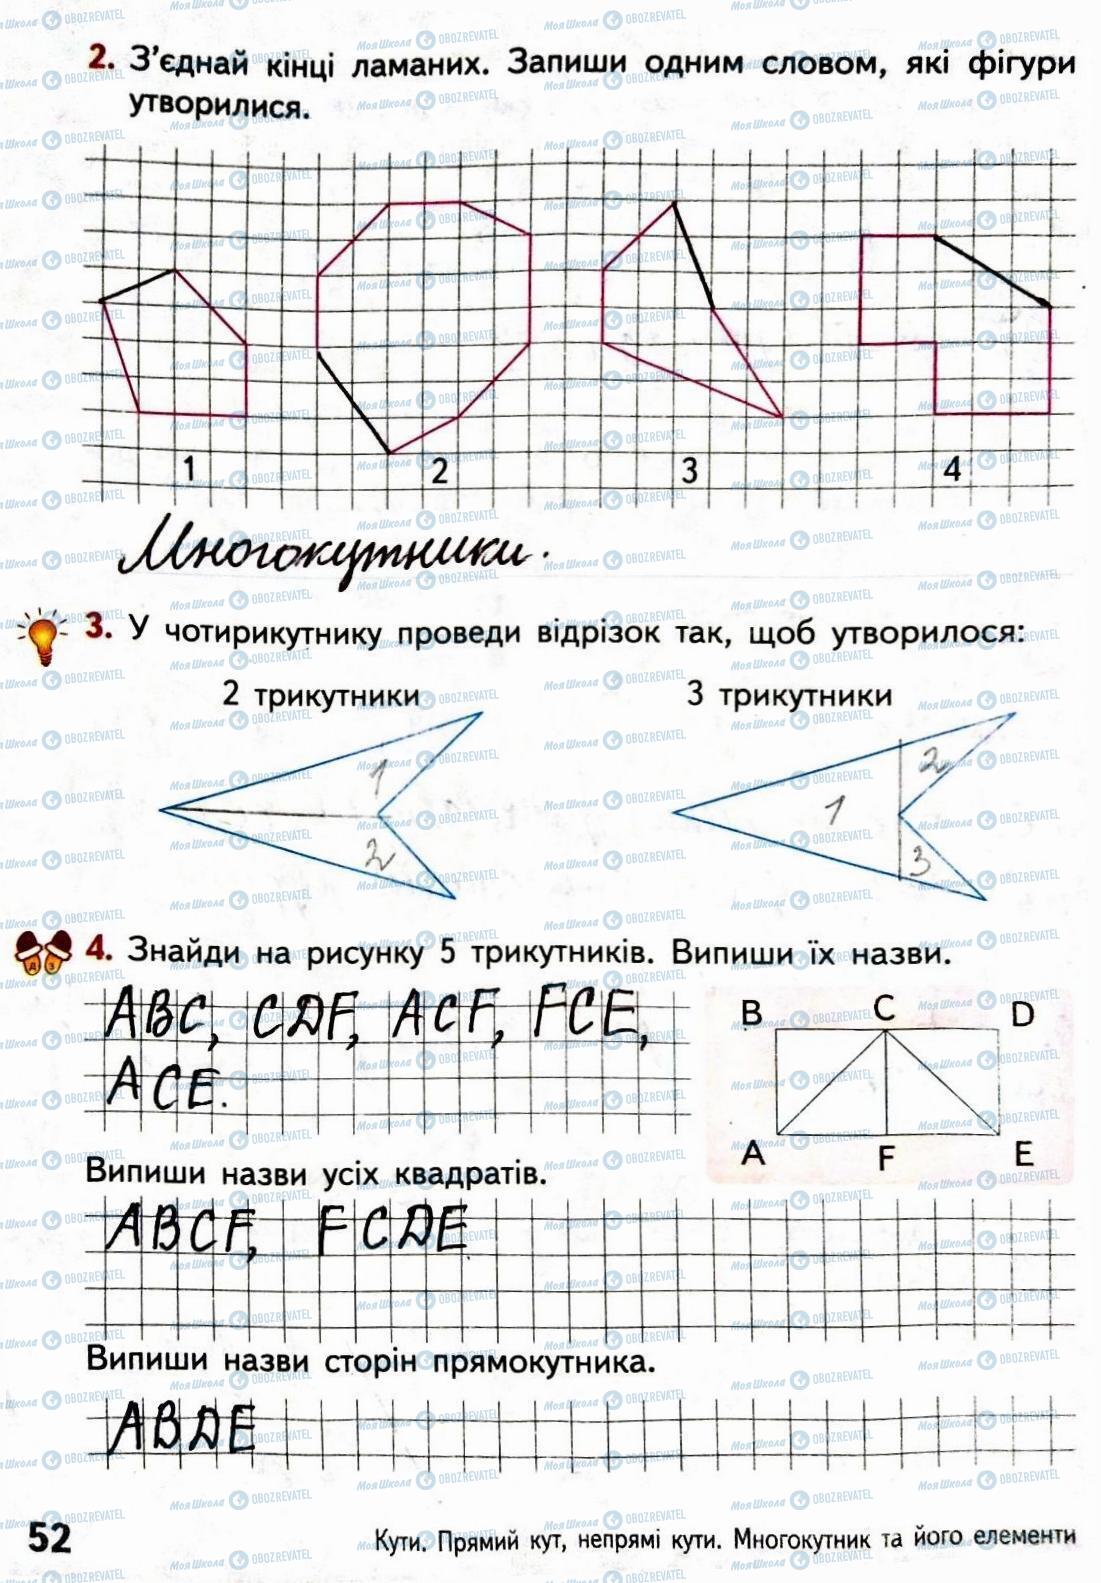 2. З’єднай кінці ламаних. Запиши одним словом, які фігури
утворилися.
1 2 3 4
Многокутники.
3. У чотирикутнику проведи відрізок так, щоб утворилося:
2 трикутники 3 трикутники
1 2
1 2 3
4. Знайди на рисунку 5 трикутників. Випиши їх назви.
ABC, CDF, ACF, FCE,
ACE.
B C D
A F E
Випиши назви усіх квадратів.
ABCF, FCDE.
Випиши назви сторін прямокутника.
ABDE
52 Кути. Прямий кут, непрямі кути. Многокутник та його елементи
МояШкола OBOZREVATEL